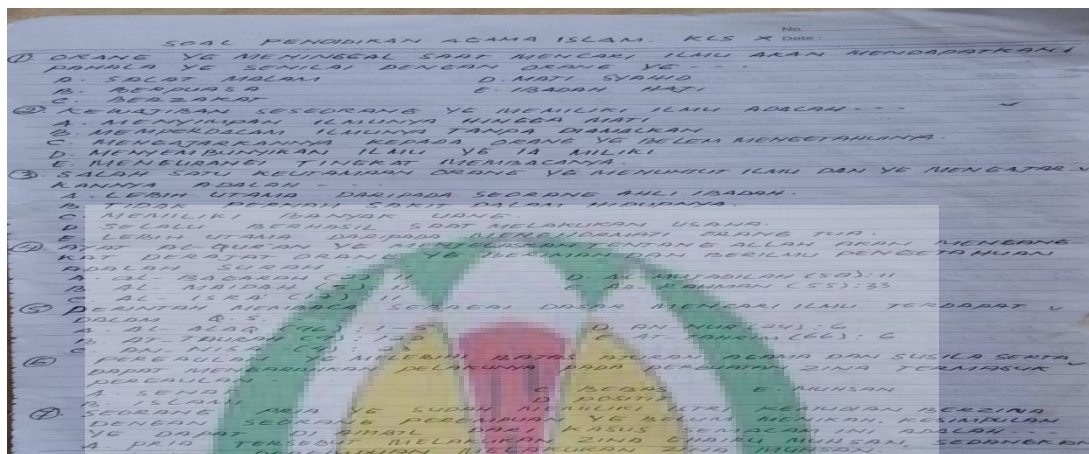 No.
SOAL PENDIDIKAN AGAMA ISLAM. KLS X Date
① ORANG YG MENINGGAL SAAT MENCARI ILMU AKAN MENDAPATKAN
PAHALA YG SENILAI DENGAN ORANG YG - - -
A. SALAT MALAM D. MATI SYAHID
B. BERPUASA E. IBADAH HAJI
C. BERZAKAT
② KEWAJIBAN SESEORANG YG MEMILIKI ILMU ADALAH - - -
A. MENYIMPAN ILMUNYA HINGGA MATI
B. MEMPERDALAM ILMUNYA TANPA DIAMALKAN
C. MENGAJARKANNYA KEPADA ORANG YG BELEM MENGETAHUINYA.
D. MENYEMBUNYIKAN ILMU YG IA MILIKI
E. MENGURANGI TINGKAT MEMBACANYA.
③ SALAH SATU KEUTAMAAN ORANG YG MENUNTUT ILMU DAN YG MENGAJAR
KANNYA ADALAH - - -
A. LEBIH UTAMA DARIPADA SEORANG AHLI IBADAH.
B. TIDAK PERNAH SAKIT DALAM HIDUPNYA.
C. MEMILIKI BANYAK UANG.
D. SELALU BERHASIL SAAT MELAKUKAN USAHA.
E. LEBIH UTAMA DARIPADA MENGHORMATI ORANG TUA.
④ AYAT AL-QUR'AN YG MENJELASKAN TENTANG ALLAH AKAN MENGANG
KAT DERAJAT ORANG YG BERIMAN DAN BERILMU PENGETAHUAN
ADALAH SURAH
A. AL-BAQARAH : 11 D. AL-MUJADILAH (58) : 11
B. AL-MAIDAH : 11 E. AR-RAHMAN (55) : 33
C. AL-ISRA' : 11
⑤ PERINTAH MEMBACA SEBAGAI DASAR MENCARI ILMU TERDAPAT
DALAM Q.S.
A. AL-ALAQ (96) : 1-5 D. AN-NUR (24) : 6
B. AT-TAUBAH (66) : 6
C.
⑥ PERGAULAN YG MELEBIHI BATAS ATURAN AGAMA DAN SUSILA SERTA
DAPAT PELAKUNYA PADA PERBUATAN ZINA TERMASUK
PERGAULAN -
A. C. BEBAS E. MUHSAN
B. ISLAMI D. POSITIF
⑦ SEORANG PRIA YG SUDAH MEMILIKI ISTRI KEMUDIAN BERZINA
DENGAN SEORANG PEREMPUAN YG MENIKAH. KESIMPULAN
YG DAPAT DARI KASUS INI ADALAH - - -
A. PRIA TERSEBUT MELAKUKAN ZINA GHAIRU MUHSAN, SEDANGKAN
PEREMPUAN MELAKUKAN ZINA MUHSAN.